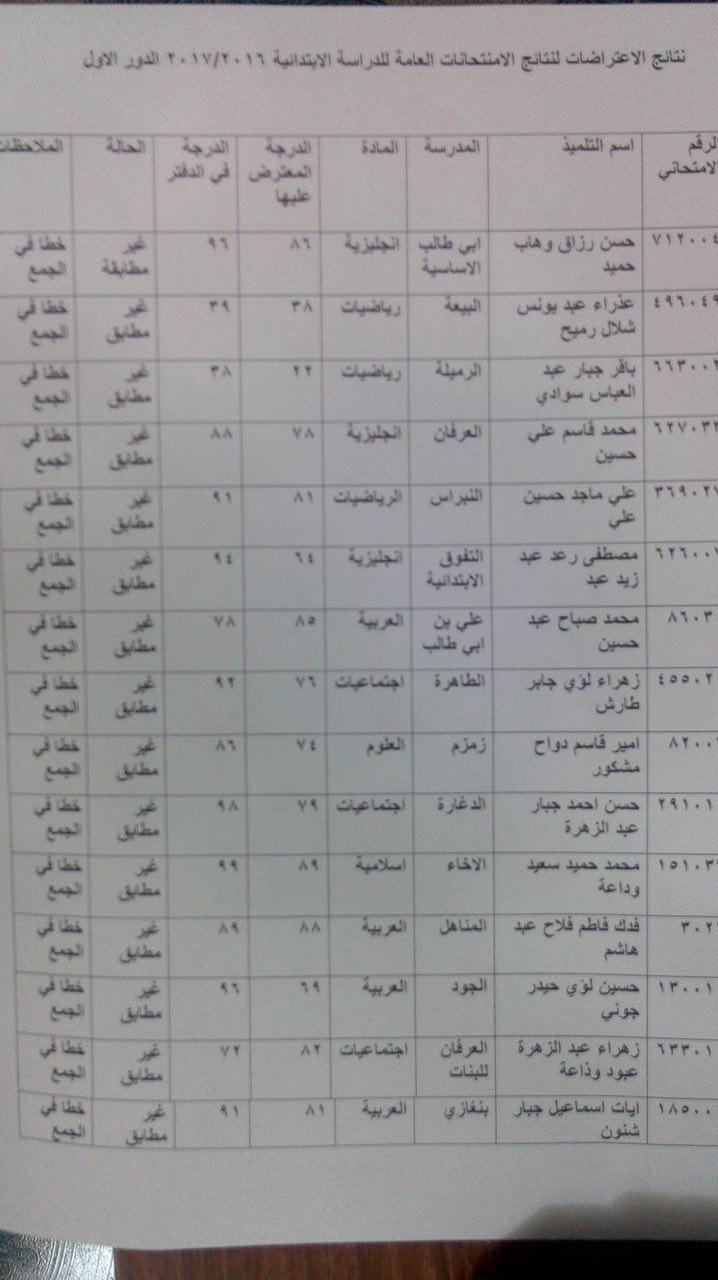 نتائج الاعتراضات لنتائج الامتحانات العامة للدراسة الابتدائية ٢٠١٧/٢٠١٦ الدور الاول
الرقم الامتحاني اسم التلميذ المدرسة المادة الدرجة المعترض عليها الدرجة في الدفتر الحالة الملاحظات
٧١٢٠٠٤ حسن رزاق وهاب حميد ابي طالب الاساسية انجليزية ٨٦ ٩٦ غير مطابقة خطا في الجمع
٤٩٦٠٤٩ عذراء عبد يونس شلال رميح البيعة رياضيات ٣٨ ٣٩ غير مطابق خطا في الجمع
٦٦٣٠٠٢ باقر جبار عبد العباس سوادي الرميلة رياضيات ٢٢ ٣٨ غير مطابق خطا في الجمع
٦٢٧٠٣٢ محمد قاسم علي حسين العرفان انجليزية ٧٨ ٨٨ غير مطابق خطا في الجمع
٣٦٩٠٢٧ علي ماجد حسين علي النبراس الرياضيات ٨١ ٩١ غير مطابق خطا في الجمع
٦٢٦٠٠٧ مصطفى رعد عبد زيد عبد التفوق الابتدائية انجليزية ٦٤ ٩٤ غير مطابق خطا في الجمع
٨٦٠٣ محمد صباح عبد حسين علي بن ابي طالب العربية ٨٥ ٧٨ غير مطابق خطا في الجمع
٤٥٥٠٢ زهراء لؤي جابر طارش الطاهرة اجتماعيات ٧٦ ٩٢ غير مطابق خطا في الجمع
٨٢٠٠ امير قاسم دواح مشكور زمزم العلوم ٧٤ ٨٦ غير مطابق خطا في الجمع
٢٩١٠١ حسن احمد جبار عبد الزهرة الدغارة اجتماعيات ٧٩ ٩٨ غير مطابق خطا في الجمع
١٥١٠٣ محمد حميد سعيد وداعة الاخاء اسلامية ٨٩ ٩٩ غير مطابق خطا في الجمع
٣٠٢ فدك فاطم فلاح عبد هاشم المناهل العربية ٨٨ ٨٩ غير مطابق خطا في الجمع
١٣٠٠١ حسين لؤي حيدر جوني الجود العربية ٦٩ ٩٦ غير مطابق خطا في الجمع
٦٣٣٠١ زهراء عبد الزهرة عبود وذاعة العرفان للبنات اجتماعيات ٨٢ ٧٢ غير مطابق خطا في الجمع
١٨٥٠٠ ايات اسماعيل جبار شنون بنغازي العربية ٨١ ٩١ غير مطابق خطا في الجمع